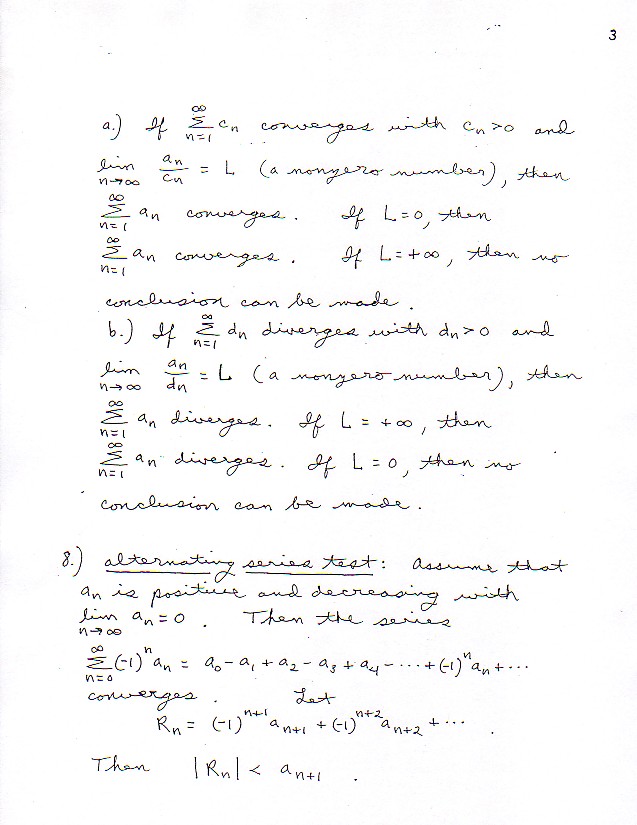 3
a.) If ∞Σn=1 cn converges with cn>0 and
lim n→∞ an/cn = L (a nonzero number), then
∞Σn=1 an converges. If L=0, then
∞Σn=1 an converges. If L=+∞, then no
conclusion can be made.
b.) If ∞Σn=1 dn diverges with dn>0 and
lim n→∞ an/dn = L (a nonzero number), then
∞Σn=1 an diverges. If L = +∞, then
∞Σn=1 an diverges. If L=0, then no
conclusion can be made.
8.) alternating series test: Assume that
an is positive and decreasing with
lim n→∞ an=0. Then the series
∞Σn=0 (-1)^n an = a0-a1+a2-a3+a4-···+(-1)^n an+···
converges. Let
Rn = (-1)^n+1 an+1 + (-1)^n+2 an+2 + ··· .
Then |Rn| < an+1 .